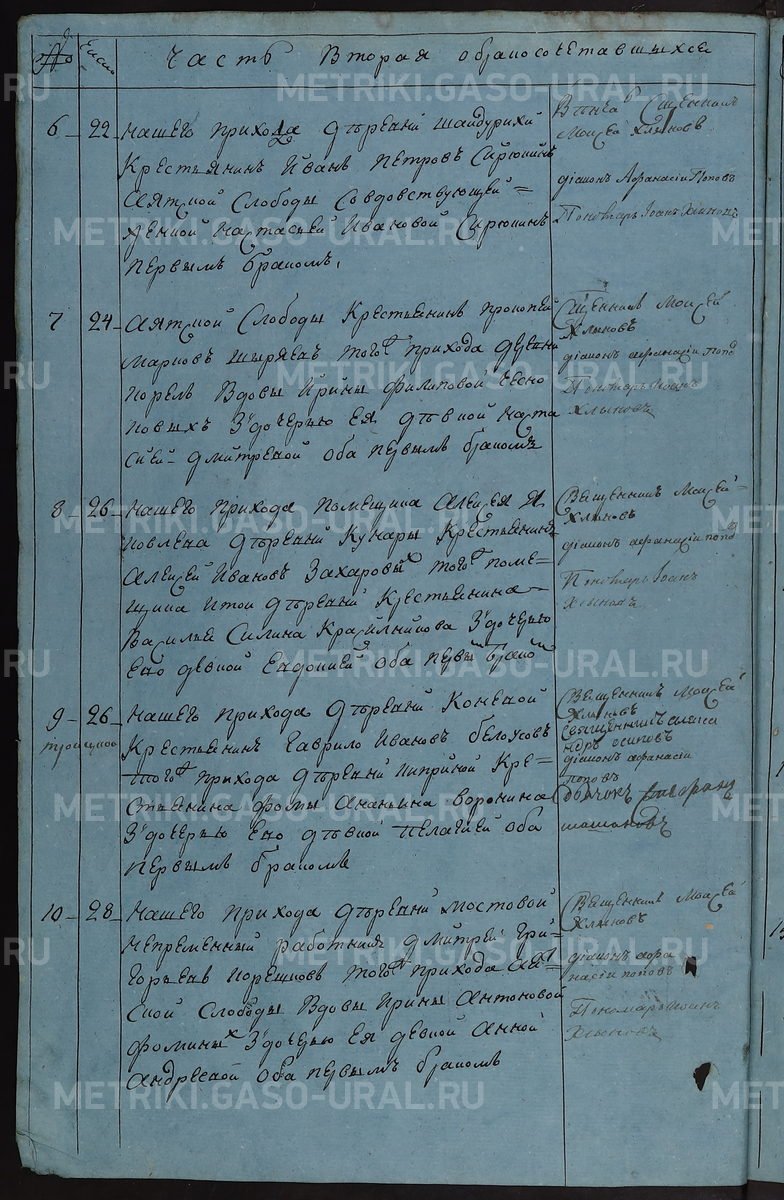 Число
Часть Вторая о бракосочетавшихся
6 22 Нашего прихода деревни Шайдурихи
Крестьянинъ Иванъ Петровъ Сирюкинъ
Аятской Слободы Совдовствующей
женкой Настасьей Ивановой
первымъ бракомъ.
Моисей Хлыновъ
діаконъ Афанасіи Поповъ
Пономарь Іоанъ Хлыновъ
7 24 Аятской Слободы Крестьянинъ Прокопей
Марковъ Ширяевъ того прихода деревни
Корелъ Вдовы Ирины Филиповой Чесно
ковыхъ Здочерью Ея девкой Наста
сиеи Дмитревой оба первымъ бракомъ
Священникъ Моисей
Хлыновъ
діаконъ афанасіи попо
Пономарь Иоан
Хлыновъ
8 26 Нашего прихода Помещика Алексея Я
ковлева деревни Кунары Крестьянинъ
Алексей Ивановъ Захаровых того поме
щика и той деревни Крестьянина
Василья Силина Красилникова Здочерью
Его девкой Евдокией оба первы брако
Священникъ Моисей
Хлыновъ
діаконъ афанасіи попо
Пономарь Іоанъ
Хлыновъ
9 26 Нашего прихода деревни Коневой
Крестьянинъ Гаврило Ивановъ белоусовъ
того прихода деревни Киприной Кре
стьянина Фомы Ананьина Воронина
Здочерью Его девкой Пелагией оба
первымъ бракомъ
Священникъ Моисей
Хлыновъ
Священникъ алекса
ндръ осиповъ
діаконъ афанасіи
поповъ
дьячокъ
10 28 Нашего прихода деревни мостовой
непременный работникъ Дмитрей Гри
горьевъ Корешковъ того прихода Аят
ской Слободы Вдовы Ирины Антоновой
Фоминых Здочерью Ея девкой Анной
Андревой оба первымъ бракомъ
Священникъ Моисей
Хлыновъ
діаконъ афа
насіи поповъ
Пономарь Иоанн
Хлыновъ
METRIKI.GASO-URAL.RU